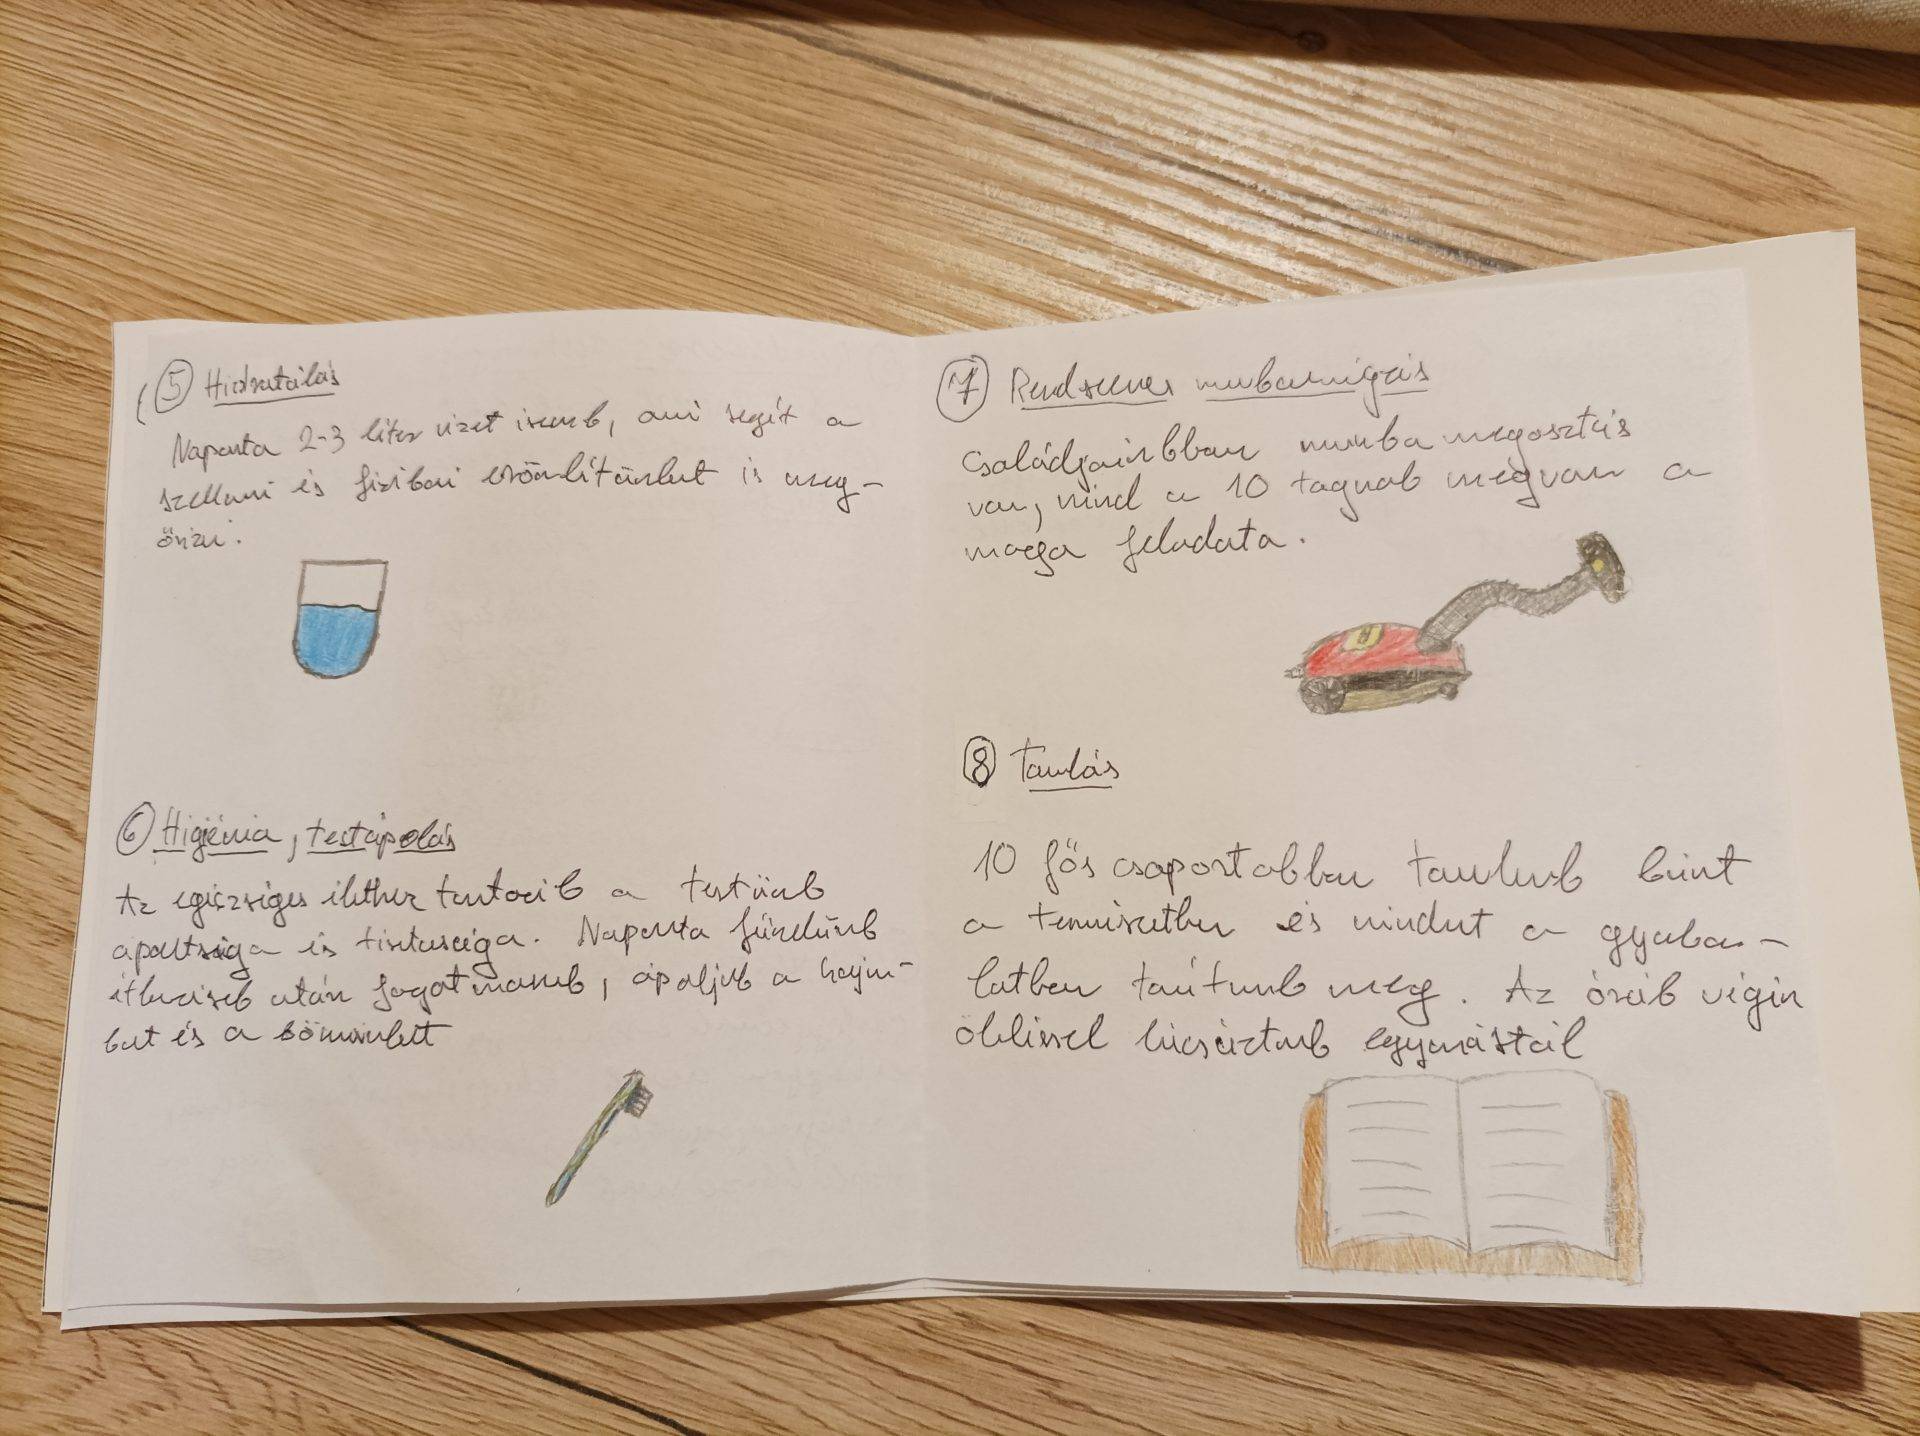 5 Hidratálás
Naponta 2-3 liter vizet iszunk, ami segít a
szellemi és fizikai erőnlétünket is meg-
őrizni.
6 Higiénia, testápolás
Az egészséges élethez tartozik a testünk
ápoltsága és tisztasága. Naponta fürdünk
étkezések után fogat mosunk, ápoljuk a hajun-
kat és a körmünket
7 Rendszeres munkavégzés
Családjainkban munka megosztás
van, mind a 10 tagnak megvan a
maga feladata.
8 Tanulás
10 fős csoportokban tanulunk kint
a természetben és mindent a gyakor-
latban tanítunk meg. Az órák végén
öleléssel búcsúztunk egymástól